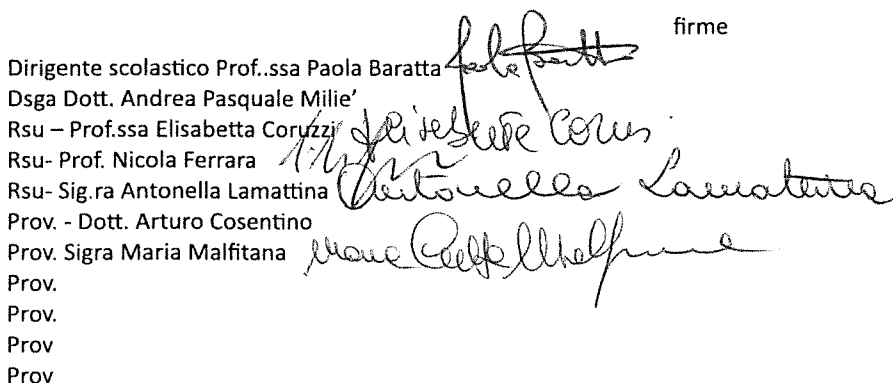 firme
Dirigente scolastico Prof..ssa Paola Baratta Paola Baratta
Dsga Dott. Andrea Pasquale Milie'
Rsu – Prof.ssa Elisabetta Coruzzi
Rsu- Prof. Nicola Ferrara
Rsu- Sig.ra Antonella Lamattina Antonella Lamattina
Prov. - Dott. Arturo Cosentino
Prov. Sigra Maria Malfitana
Prov.
Prov.
Prov
Prov